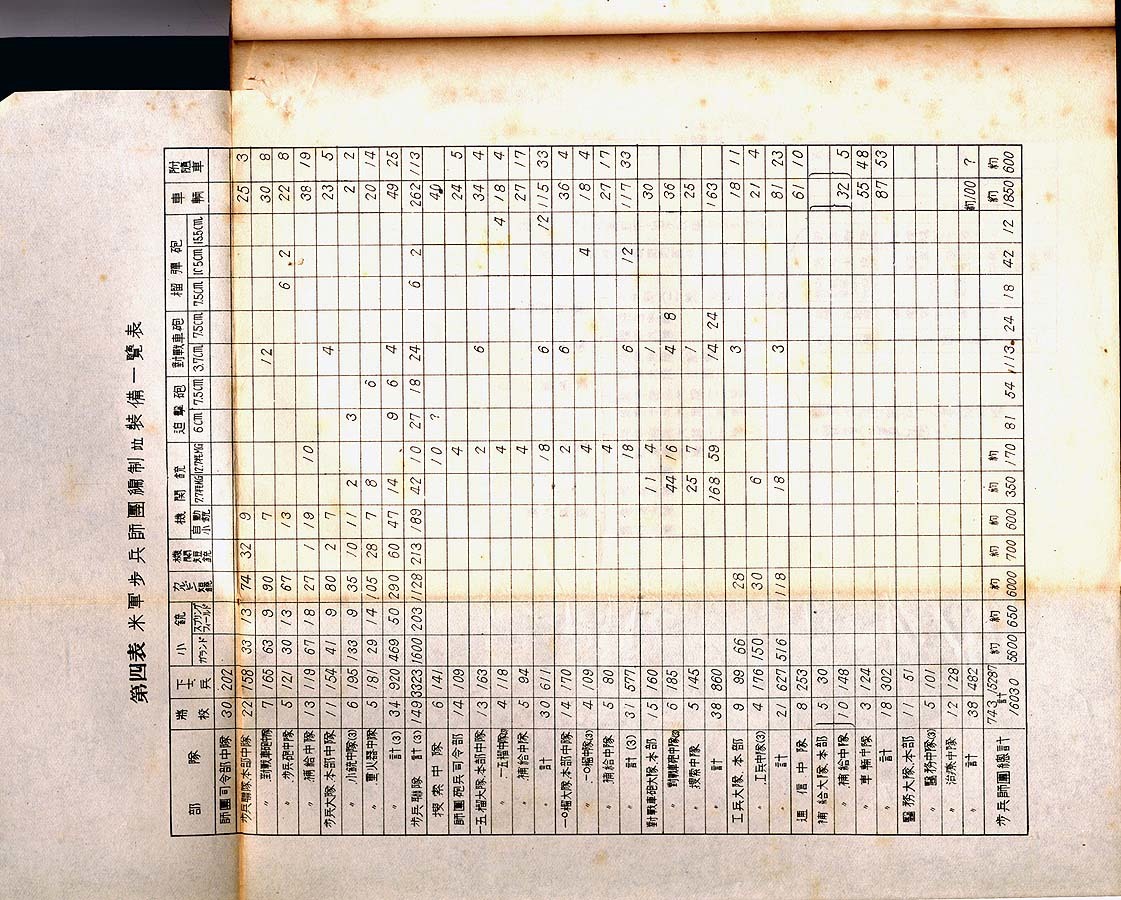 第四表 米軍歩兵師團編制竝裝備一覽表
部隊 將校 下士兵 小銃 ガランド スプリングフィールド カービン銃 機関短銃 機関銃 自動小銃 7.7粍MG 12.7粍MG 迫撃砲 6cm 7.5cm 對戰車砲 3.7cm 7.5cm 榴彈砲 7.5cm 10.5cm 15.5cm 車輛 附隨車
師團司令部中隊 30 202
歩兵聯隊本部中隊 22 158 33 13 74 32 9 25 3
〃 對戰車砲中隊 7 165 63 9 90 7 12 30 8
〃 歩兵砲中隊 5 121 30 13 67 13 6 2 22 8
〃 補給中隊 13 119 67 18 27 1 19 10 38 19
歩兵大隊本部中隊 11 154 41 9 80 2 7 4 23 5
〃 小銃中隊(3) 6 195 133 9 35 10 11 2 3 2 2
〃 重火器中隊 5 181 29 14 105 28 7 8 6 20 14
〃 計(3) 34 920 469 50 290 60 47 14 9 6 4 49 25
歩兵聯隊 計(3) 149 3323 1600 203 1128 213 189 42 10 27 18 24 6 2 262 113
捜索中隊 6 141 10 ? 40
師團砲兵司令部 14 109 4 24 5
一五榴大隊本部中隊 13 163 2 6 34 4
〃 一五榴中隊(3) 4 118 4 4 18 4
〃 補給中隊 5 94 4 27 17
〃 計 30 611 18 6 12 115 33
一〇榴大隊本部中隊 14 170 2 6 36 4
〃 一〇榴中隊(3) 4 109 4 4 18 4
〃 補給中隊 5 80 4 27 17
〃 計(3) 31 577 18 6 12 117 33
對戰車砲大隊本部 15 160 11 4 1 30
〃 對戰車砲中隊(3) 6 185 44 16 4 8 36
〃 捜索中隊 5 145 25 7 1 25
〃 計 38 860 168 59 14 24 163
工兵大隊本部 9 99 66 28 3 18 11
〃 工兵中隊(3) 4 176 150 30 6 21 4
〃 計 21 627 516 118 18 3 81 23
通信中隊 8 253 61 10
補給大隊本部 5 30
〃 補給中隊 10 148 32 5
〃 車輛中隊 3 124 55 48
〃 計 18 302 87 53
醫務大隊本部 11 51
〃 醫務中隊(3) 5 101
〃 治療中隊 12 128
〃 計 38 482 約100 ?
歩兵師團總計 743 15287 計16030 約5600 約650 約6000 約700 約600 約350 約170 81 54 113 24 18 42 12 約1850 約600